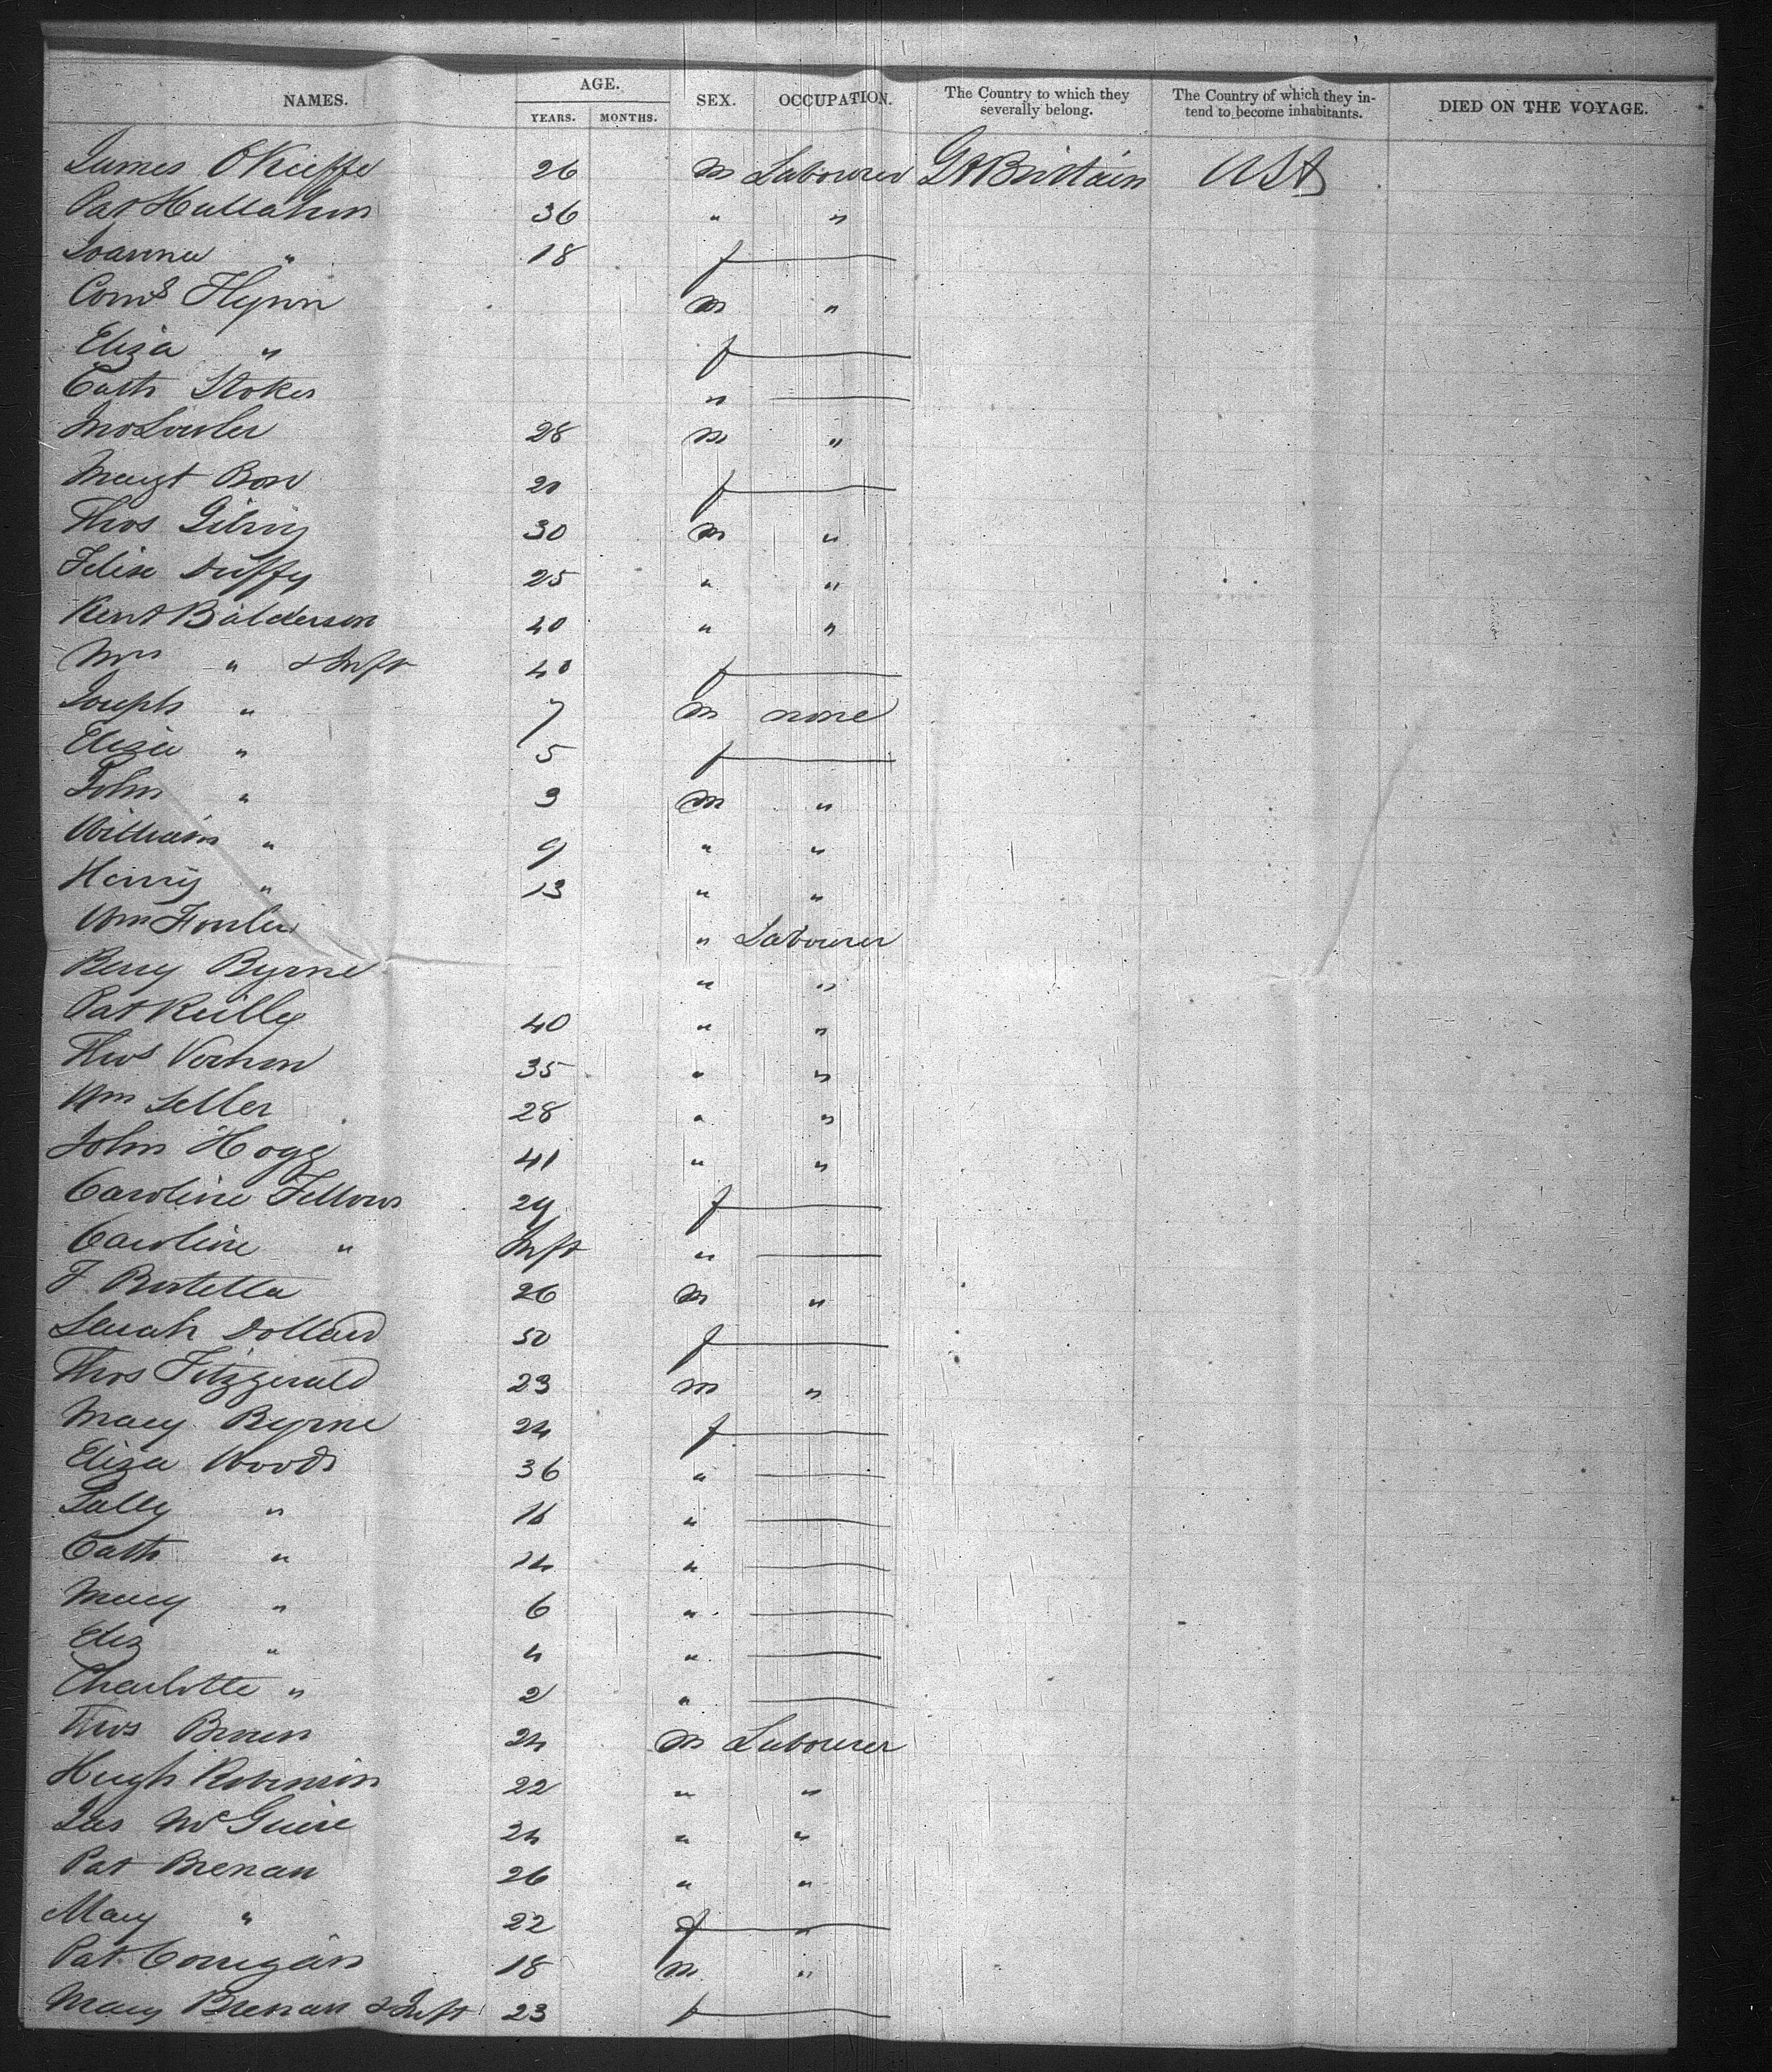 NAMES. AGE. SEX. OCCUPATION. The Country to which they severally belong. The Country of which they in-tend to become inhabitants. DIED ON THE VOYAGE.
YEARS. MONTHS.
James O'Kieffe 26 m Labourer Gt Brittain USA
Pat Hallahan 36 " "
Joanna " 18 f
Corns Flynn m "
Eliza " f
Cath Stokes "
Jno Lawler 28 m "
Margt 20 f
Thos 30 m "
Felix Duffy 25 " "
Kent Balderson 40 " "
Mrs " & Inft 40 f
Joseph " 7 m none
Eliza " 5 f
John " 3 m "
William " 9 " "
Henry " 13 " "
Wm Fowler " Labourer
Byrne " "
Pat Reilly 40 " "
Thos Vernon 35 " "
Wm Seller 28 " "
John Hogg 41 " "
Caroline Fellows 24 f
Caroline " Inft "
F. 26 m "
Sarah Dollard 50 f
Thos Fitzgerald 23 m "
Mary Byrne 24 f
Eliza Woods 36 "
Sally " 16 "
Cath " 14 "
Mary " 6 "
Eliz " 4 "
Charlotte " 2 "
Thos Brown 24 m Labourer
Hugh Robinson 22 " "
Jas McGuire 24 " "
Pat Brenan 26 " "
Mary " 22 f "
Pat Corrigan 18 m "
Mary Brenan & Inft 23 f